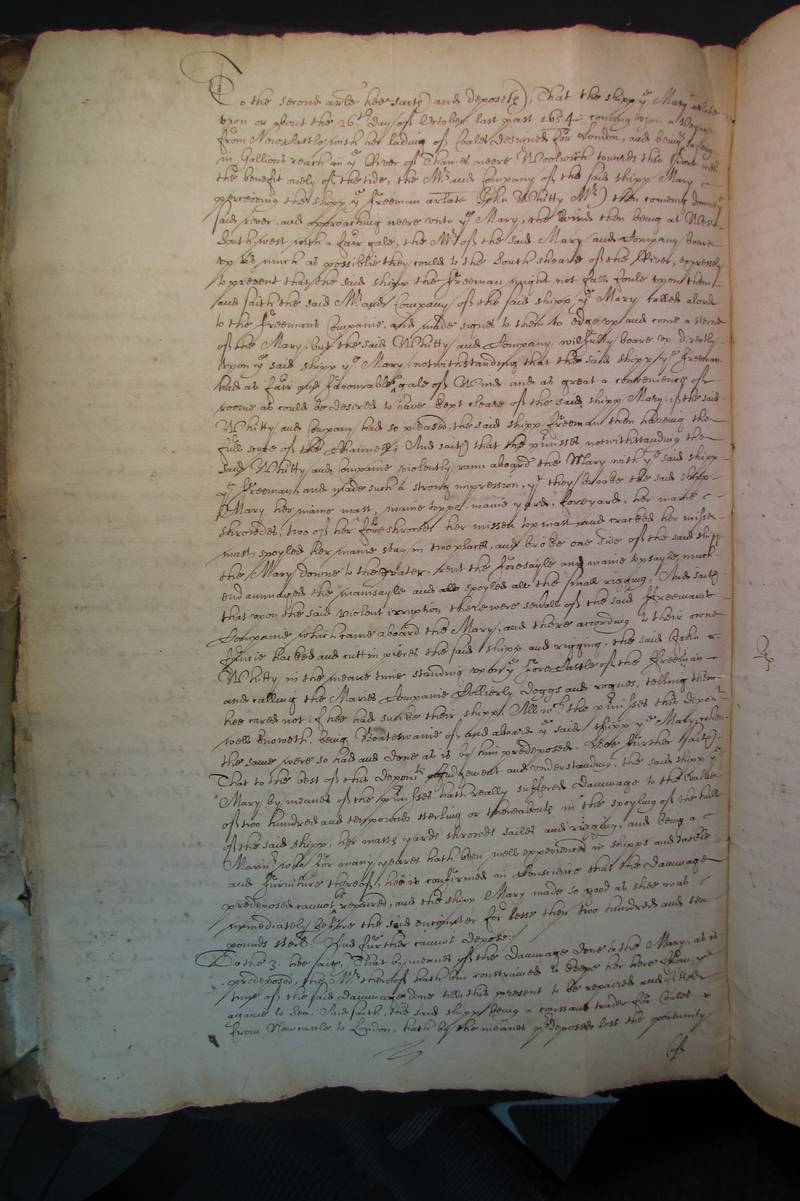 To the second arle hee saith and deposeth, That the shipp ye Mary arlate
upon or about the 26th day of October last past 1654 coming upon a voyage
from Newcastle with her lading of Coales designed for London, and being
in Gallions reach in ye River of Thames neere Woolwich towards this
the benefit onely of the tide, the Mr and Company of the said shipp Mary
perceiving the shipp ye Freeman arlate (John Whitty Mr) then coming downe ye
said river, and approaching neere unto ye Mary, the Wind then being at West
Southwest with a faire gale, the Mr of the said Mary and Company bore
up as much as possiblie they could to the South shoare of the River, expressly
to prevent that the said shipp the Freeman might not fall foule upon them
and saith the said Mr and Company of the said shipp ye Mary called aloud
to the Freemans Companie, and made signes to them to edge up and come a sterne
of the Mary, but the said Whitty and Company wilfully boare up directly
upon ye said shipp ye Mary, notwithstanding that the said shipp ye Freeman
had as fair and favourable a gale of Wind and as great a conveniency of
roome as could be desired to have kept cleare of the said shipp Mary, if the said
Whitty and Company had so pleased, the said shipp Freeman then haveing the
full scope of the Channell; And saith that the primisses notwithstanding the
said Whitty and Companie violently rann aboard the Mary with ye said shipp
ye Freeman, and made such a strong impression, yt they broake the said shipp
Mary her maine mast, maine topp, maine yard, foreyard, her maine
shroudes, two of her foreshroudes her missen topmast, and cracked her missen
mast, spoyled her maine stay in two places, and broke one side of the said shipp
the Mary downe to the water, rent the foresayle and maine topsayle, much
endammaged the mainsayle and also spoyled all the small rigging, And saith
that upon the said violent irruption there were severall of the said Freemans
Companie which came aboard the Mary, and there according to their owne
furie hacked and cutt in pieces the said shipp and rigging, the said John
Whitty in the meane time standing upon ye Forecastle of the Freeman
and calling the Maries Companie Dogges and rogues, telling them
hee cared not if hee had suncke their shipp, All wch the primisses this deponent
well knoweth, being Boateswaine of and aboard ye said shipp ye Mary when
the same were so had and done as is by him predeposed. And further saith
That to the best of this deponts judgement and understanding, the said shipp ye
Mary by meanes of the primisses hath really suffered dammage to the value
of two hundred and tenn pounds sterling or thereabouts in the spoyling of the hull
of the said shipp, her masts yards shrouds sailes and rigging, and being a
Marinr who for many yeares hath been well experienced in shipps and tackle
and furniture thereof, hee is confirmed in Conscience that the dammage
predeposed cannot be repaired, and the shipp Mary made so good as shee was
immediately before the said encounter for lesse then two hundred and ten
pounds sterl. And further cannot depose.
To the 3. hee saith, That by meanes of the dammage done to the Mary, as is
predeposed, the Mr thereof hath bin constrained to keepe her here from ye
time of the said dammage done till this present to be repaired and fitted
againe to Sea. And saith, the said shipp being a constant trader for Coales
from Newcastle to London, hath by the meanes predeposed lost the oportunity
of